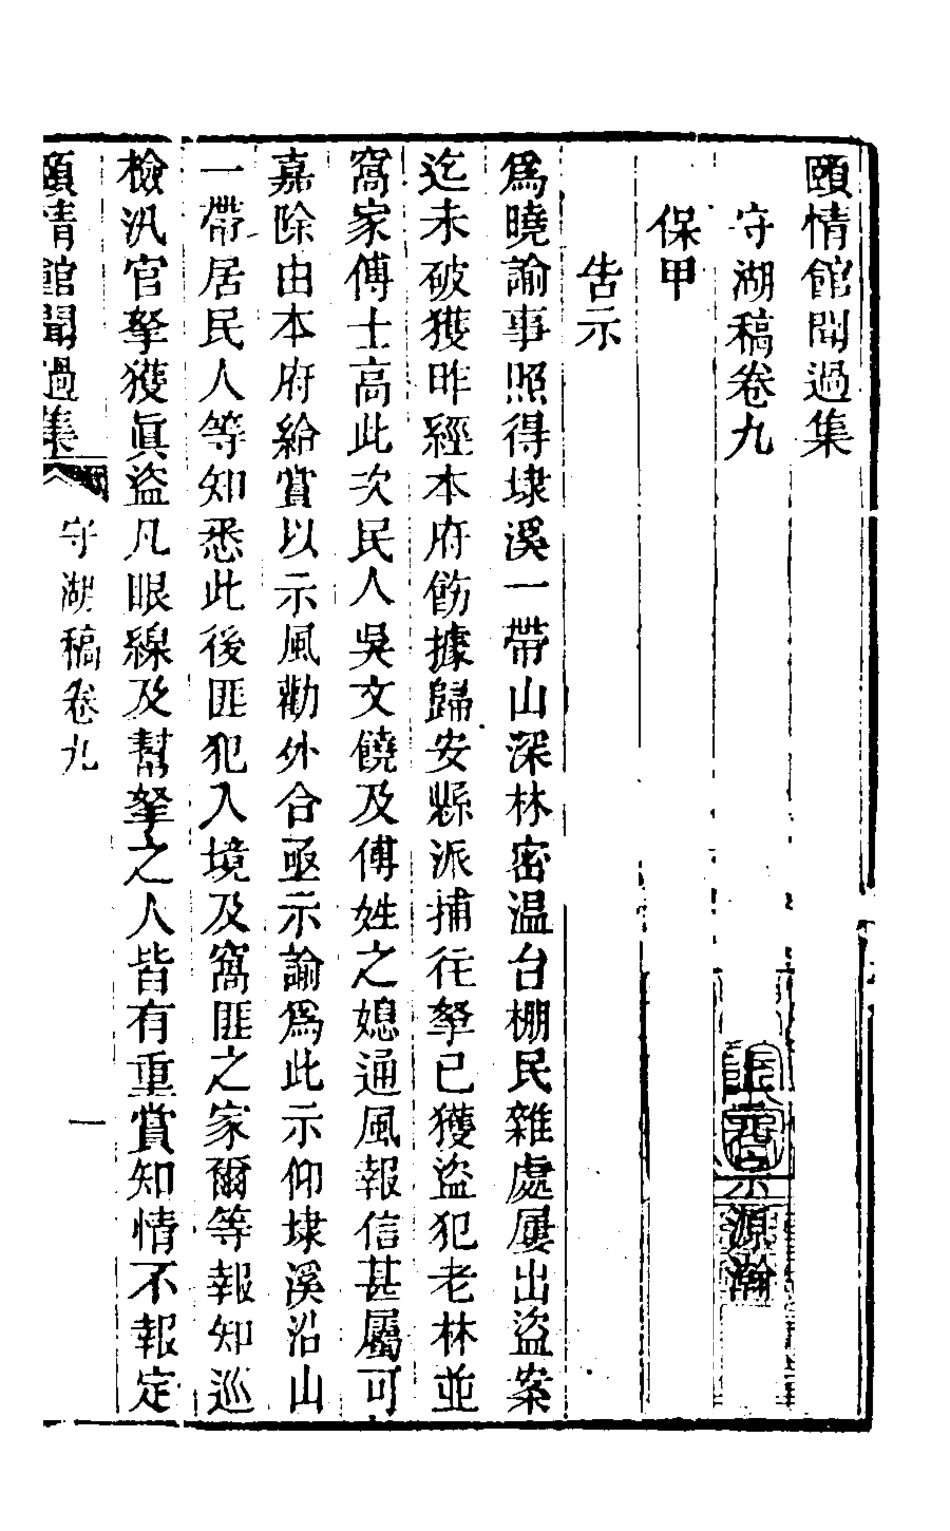 頤情館聞過集
守湖稿卷九
上元宗源瀚
保甲
告示
爲曉諭事照得埭溪一帶山深林密温台棚民雜處屢出盜案
迄未破獲昨經本府飭據歸安縣派捕往拏已獲盜犯老林並
窩家傅士高此次民人吳文饒及傅姓之媳通風報信甚屬可
嘉除由本府給賞以示風勸外合亟示諭爲此示仰埭溪沿山
一帶居民人等知悉此後匪犯入境及窩匪之家爾等報知巡
檢汛官拏獲眞盜凡眼線及幫拏之人皆有重賞知情不報定
頤情館聞過集
守湖稿卷九
一